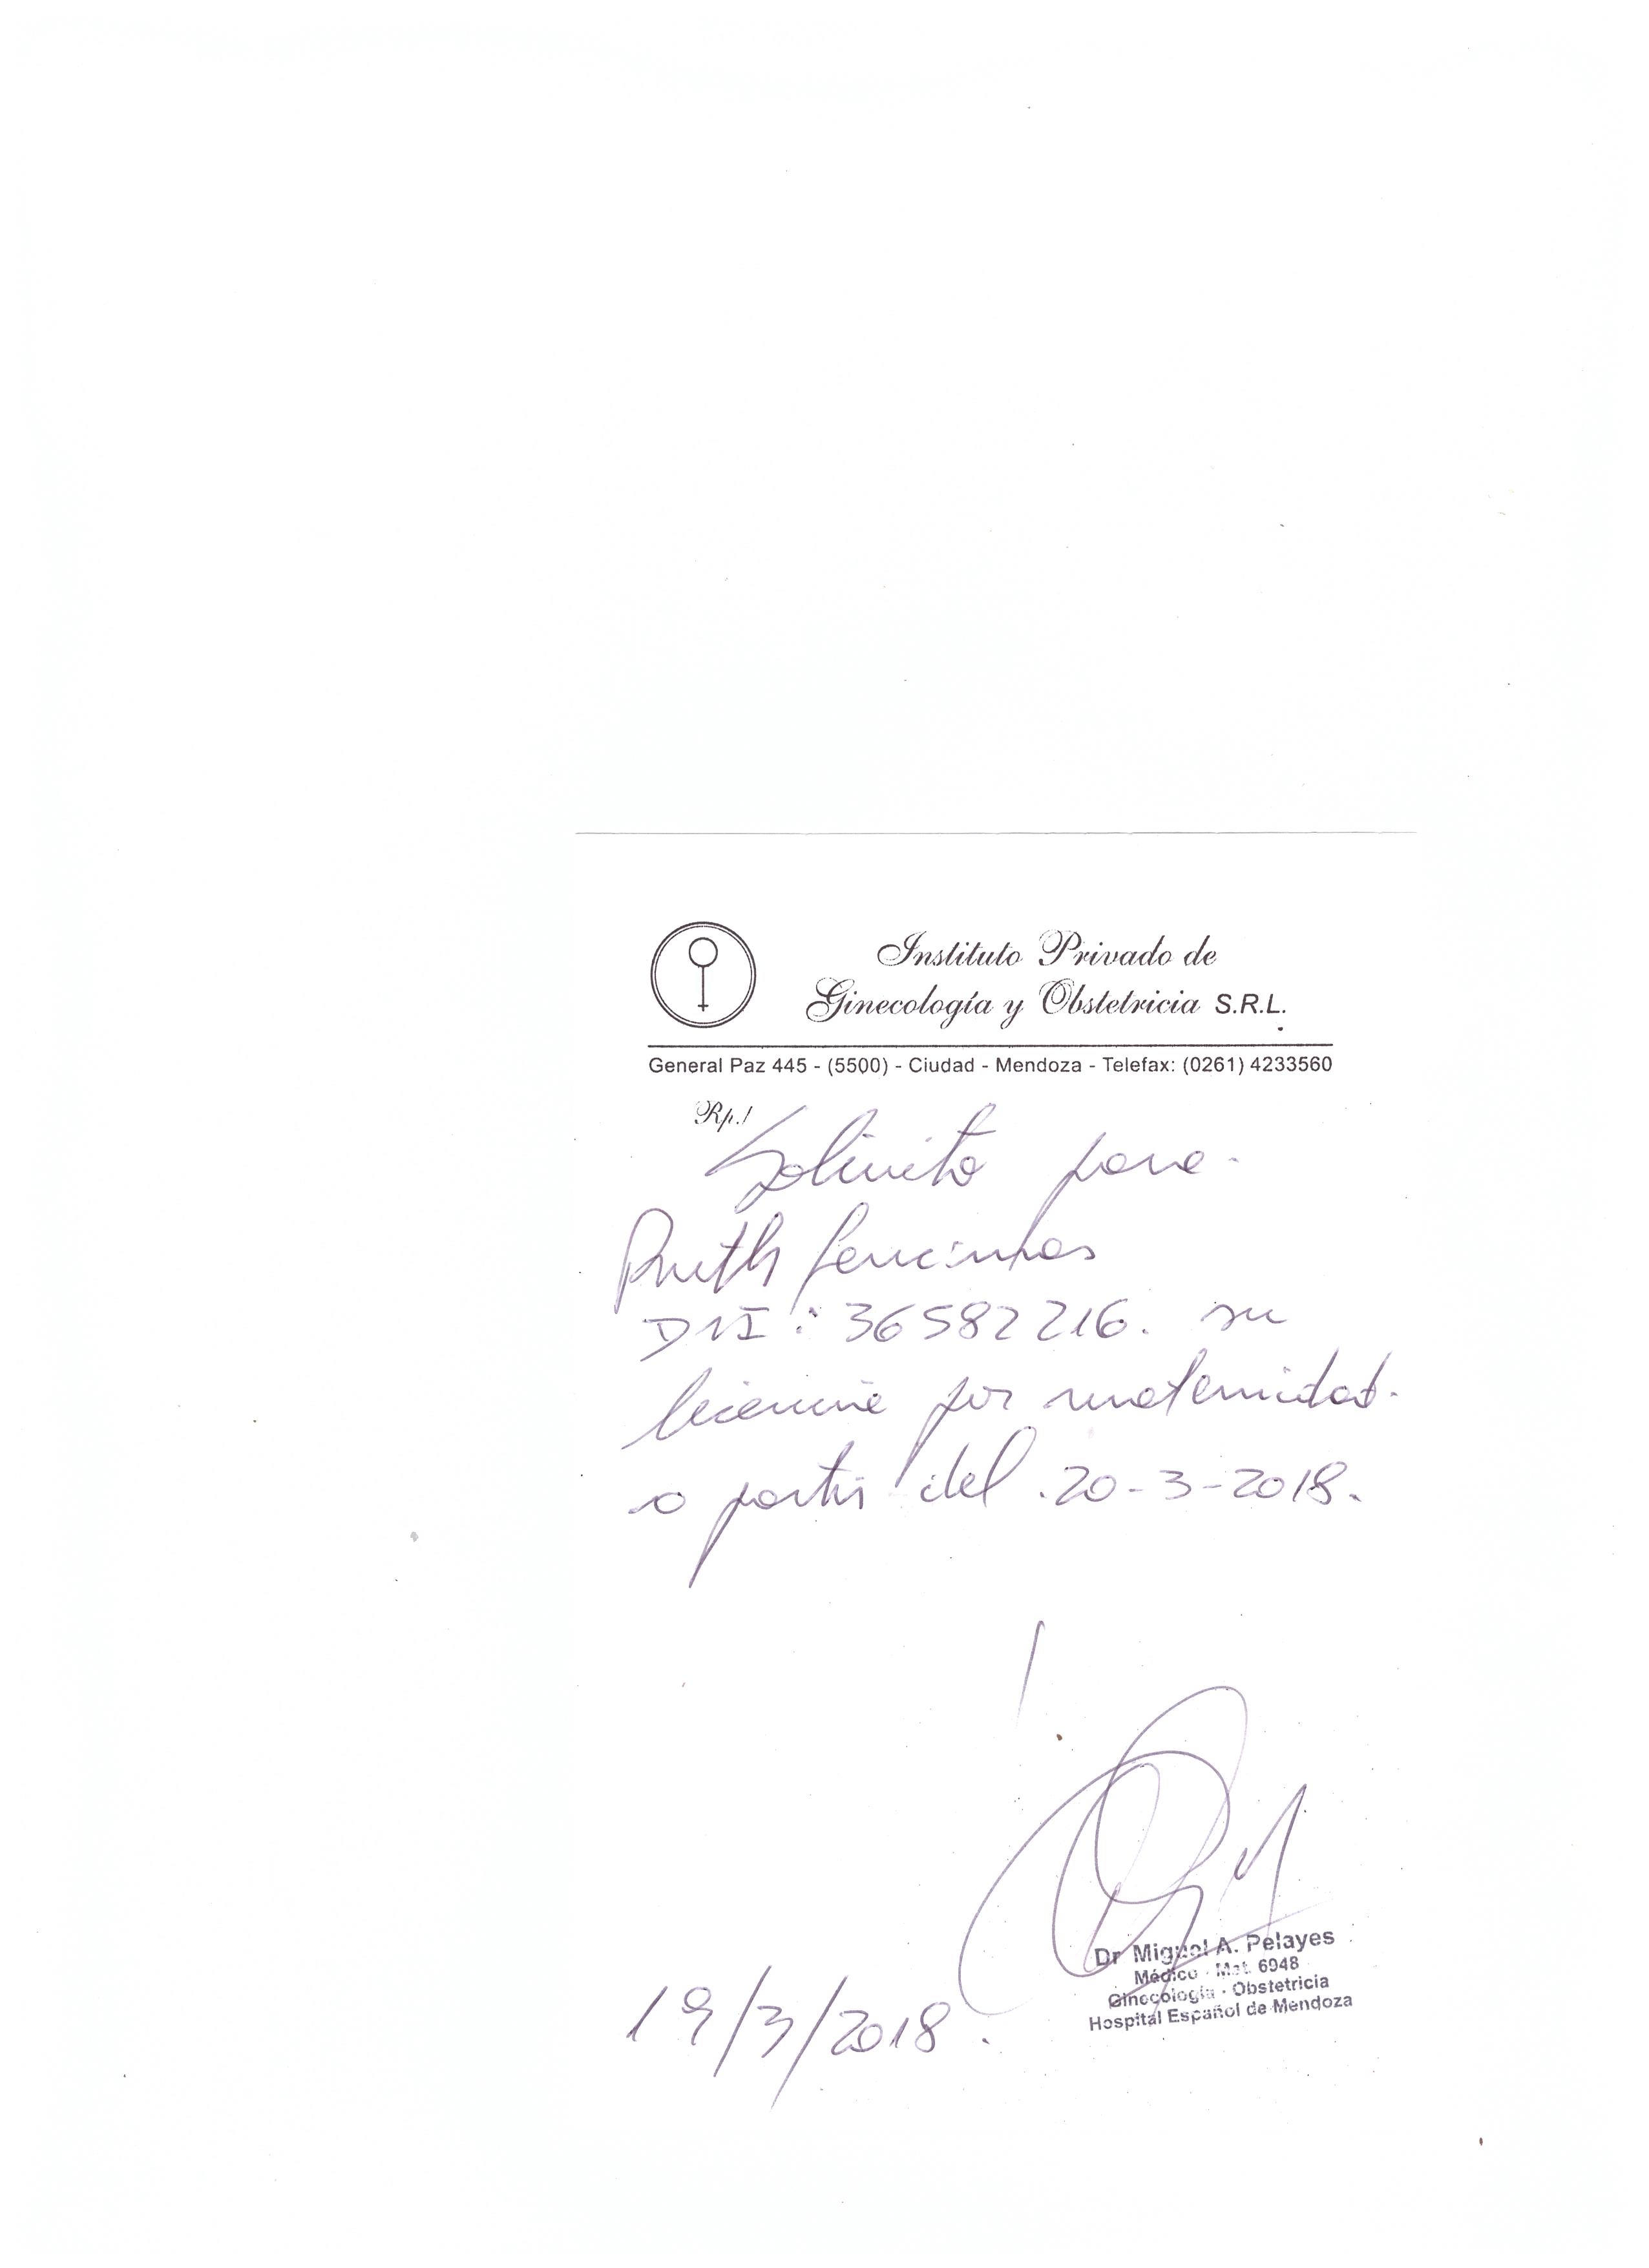 Instituto Privado de
Ginecología y Obstetricia S.R.L.
General Paz 445 - (5500) - Ciudad - Mendoza - Telefax: (0261) 4233560
Rp./
Solicito para
Ruth
DNI: 36582216. su
licencia por maternidad.
a partir del 20-3-2018.
Dr Miguel A. Pelayes
Médico - Mat. 6948
Ginecología - Obstetricia
Hospital Español de Mendoza
19/3/2018.